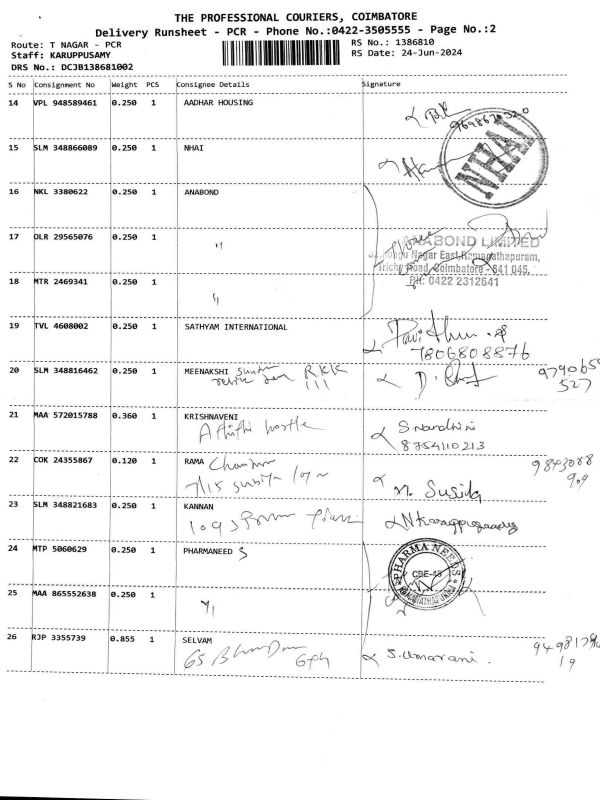 THE PROFESSIONAL COURIERS, COIMBATORE
Delivery Runsheet - PCR - Phone No.:0422-3505555 - Page No.:2
Route: T NAGAR - PCR
Staff: KARUPPUSAMY
DRS No.: DCJB138681002
RS No.: 1386810
RS Date: 24-Jun-2024
S No Consignment No Weight PCS Consignee Details Signature
14 VPL 948589461 0.250 1 AADHAR HOUSING
15 SLM 348866089 0.250 1 NHAI
NHAI
16 NKL 3380622 0.250 1 ANABOND
17 DLR 29565076 0.250 1 "
ANABOND LIMITED
Nagar East, Ramanathapuram,
Trichy Road, Coimbatore - 641 045.
PH: 0422 2312641
18 MTR 2469341 0.250 1 "
19 TVL 4608002 0.250 1 SATHYAM INTERNATIONAL
7806808876
20 SLM 348816462 0.250 1 MEENAKSHI
RKK
979065
527
21 MAA 572015788 0.360 1 KRISHNAVENI
S. Nandhini
8754110213
22 COK 24355867 0.120 1 RAMA
M. Susila
9843088
909
23 SLM 348821683 0.250 1 KANNAN
24 MTP 5060629 0.250 1 PHARMANEED S
PHARMA NEEDS
CBE-45
RAMANATHAPURAM
25 MAA 865552638 0.250 1 "
26 RJP 3355739 0.855 1 SELVAM
65
S. Umarani.
19